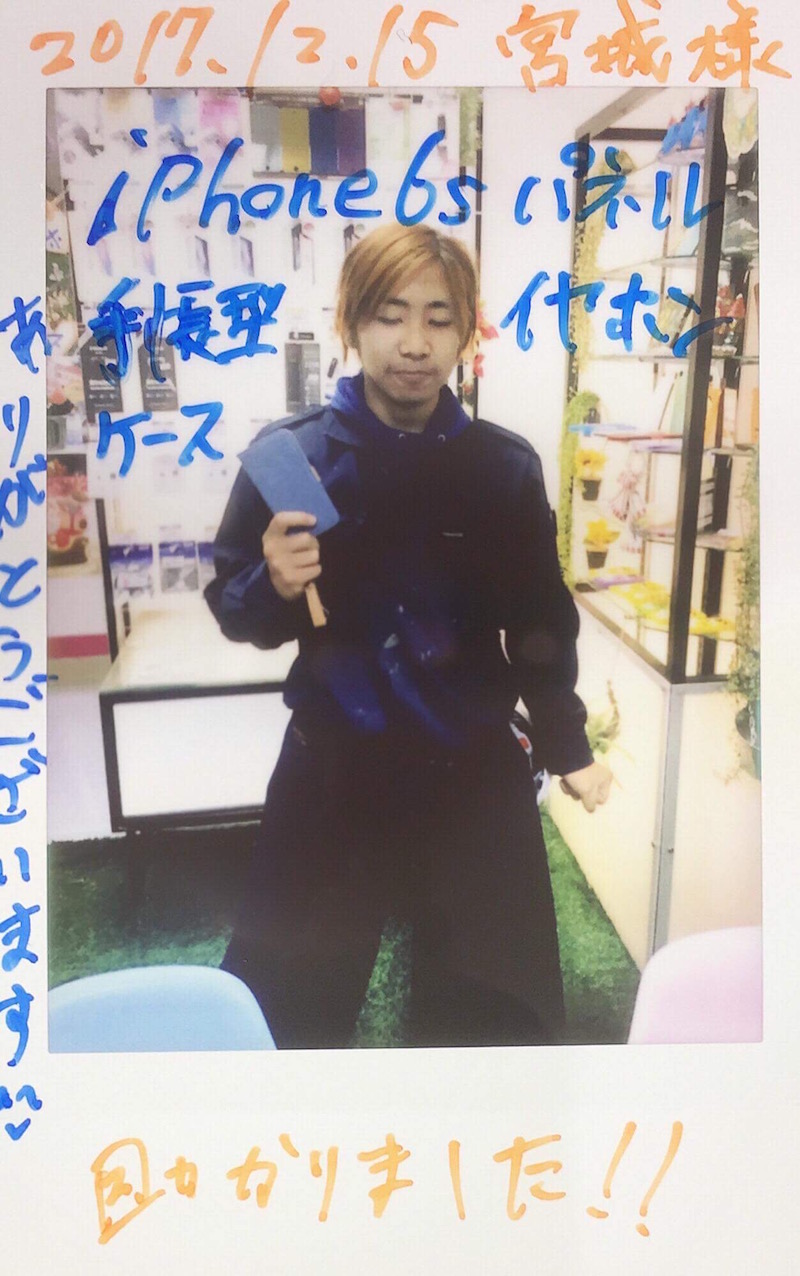 2017.12.15 宮城様
iPhone6s パネル
手帳型 イヤホン
ケース
ありがとうございます
助かりました!!